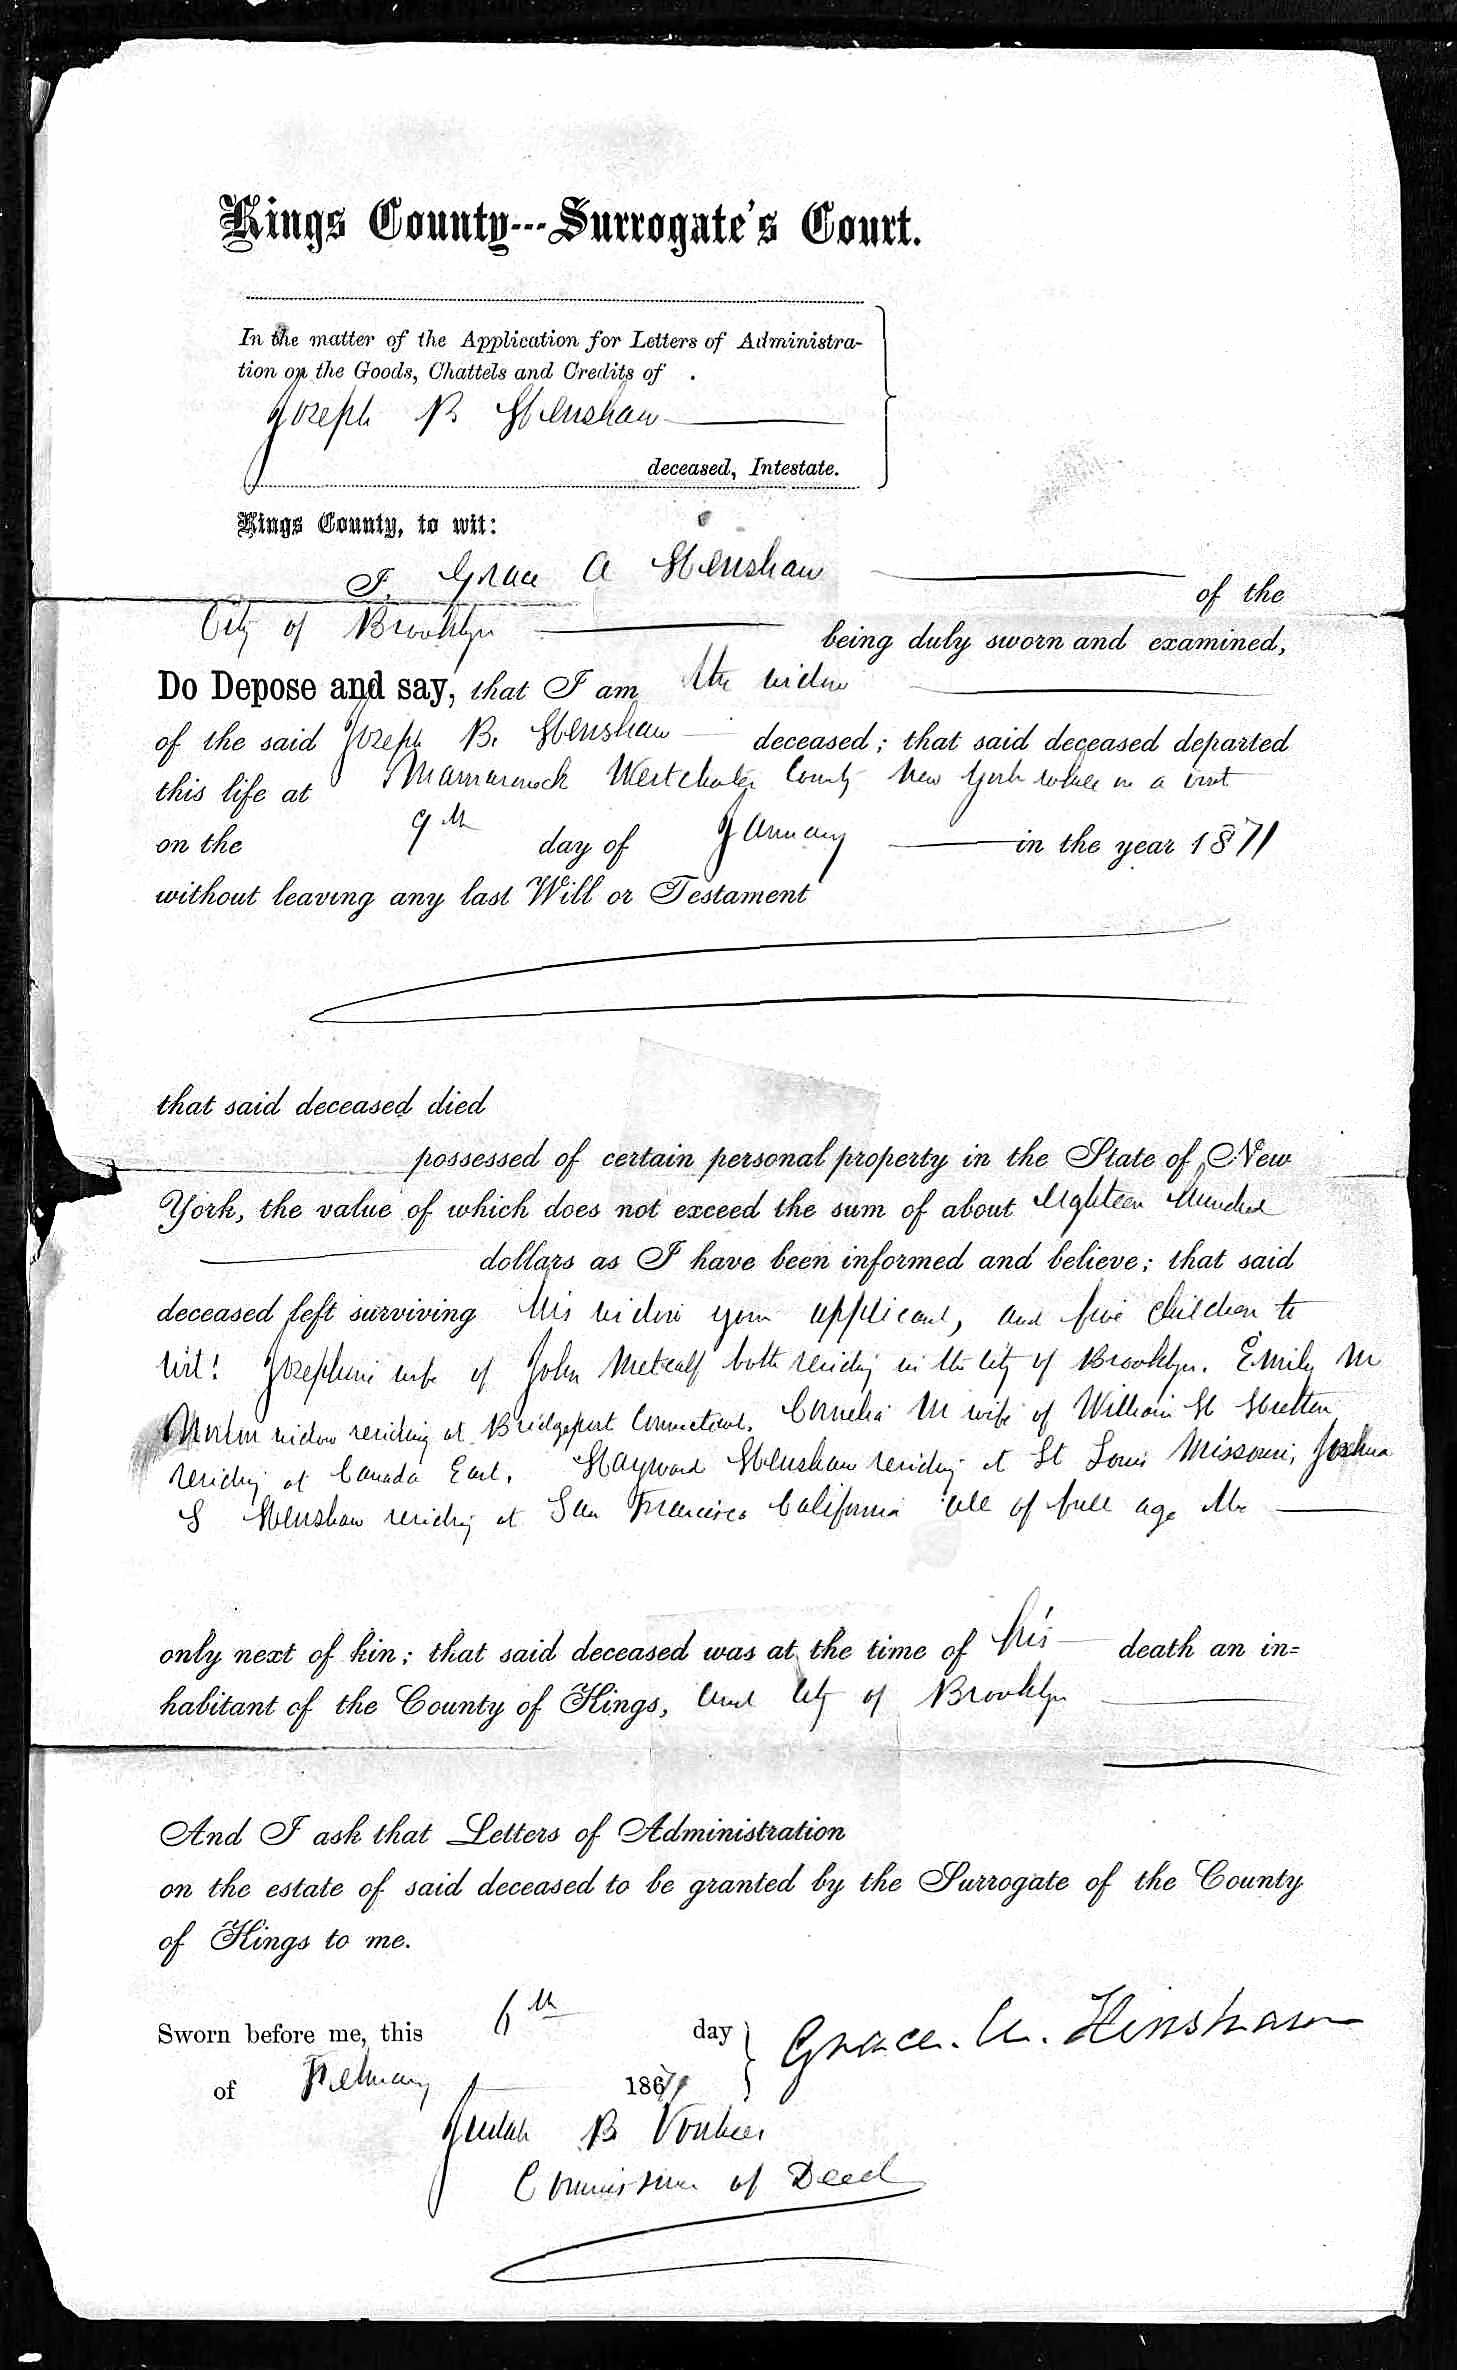 Kings County---Surrogate's Court.
In the matter of the Application for Letters of Administra-
tion on the Goods, Chattels and Credits of
Joseph B Henshaw
deceased, Intestate.
Kings County, to wit:
I, Grace A Henshaw of the
City of Brooklyn being duly sworn and examined,
Do Depose and say, that I am the widow
of the said Joseph B. Henshaw deceased; that said deceased departed
this life at Mamaroneck Westchester County New York while on a visit
on the 9th day of January in the year 1871
without leaving any last Will or Testament
that said deceased died
possessed of certain personal property in the State of New
York, the value of which does not exceed the sum of about Eighteen Hundred
dollars as I have been informed and believe; that said
deceased left surviving his widow your applicant, and five children to
wit: Josephine wife of John Metcalf both residing in the City of Brooklyn. Emily M
widow residing at Bridgeport Connecticut. Cornelia M wife of William H
residing at Canada East. Hayward Henshaw residing at St Louis Missouri, Joshua
S Henshaw residing at San Francisco California all of full age the
only next of kin; that said deceased was at the time of his death an in-
habitant of the County of Kings, and City of Brooklyn
And I ask that Letters of Administration
on the estate of said deceased to be granted by the Surrogate of the County
of Kings to me.
Sworn before me, this 6th day Grace. A. Henshaw
of February 1871
Judah B Voorhees
Commissioner of Deed